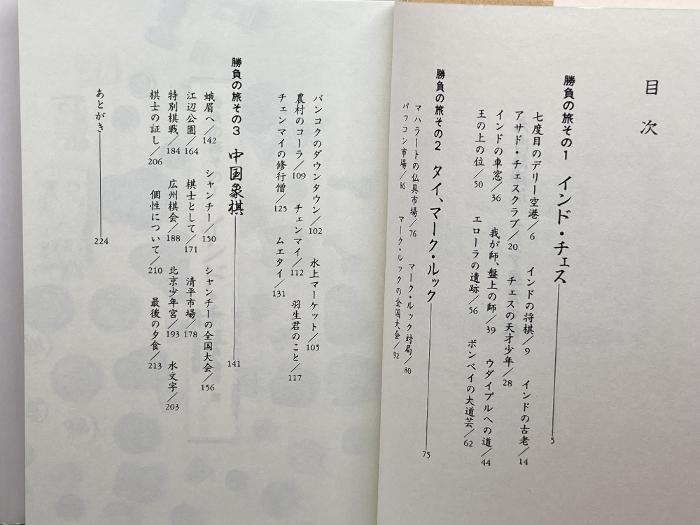 目次
勝負の旅その1 インド・チェス 5
七度目のデリー空港/6 インドの将棋/9 インドの古老/14
アサド・チェスクラブ/20 チェスの天才少年/28
インドの車窓/36 我が師、盤上の師/39 ウダイプルへの道/44
王の上の位/50 エローラの遺跡/56 ボンベイの大道芸/62
勝負の旅その2 タイ、マーク・ルック 75
マハラートの仏具市場/76 マーク・ルック対局/80
バッコン市場/86 マーク・ルックの全国大会/92
バンコクのダウンタウン/102 水上マーケット/105
農村のコーラ/109 チェンマイ/112 羽生君のこと/117
チェンマイの修行僧/125 ムエタイ/131
勝負の旅その3 中国象棋 141
蛾眉へ/142 シャンチー/150 シャンチーの全国大会/156
江辺公園/164 棋士として/171 清平市場/178
特別棋戦/184 広州棋会/188 北京少年宮/193 水文字/203
棋士の証し/206 個性について/210 最後の夕食/213
あとがき 224